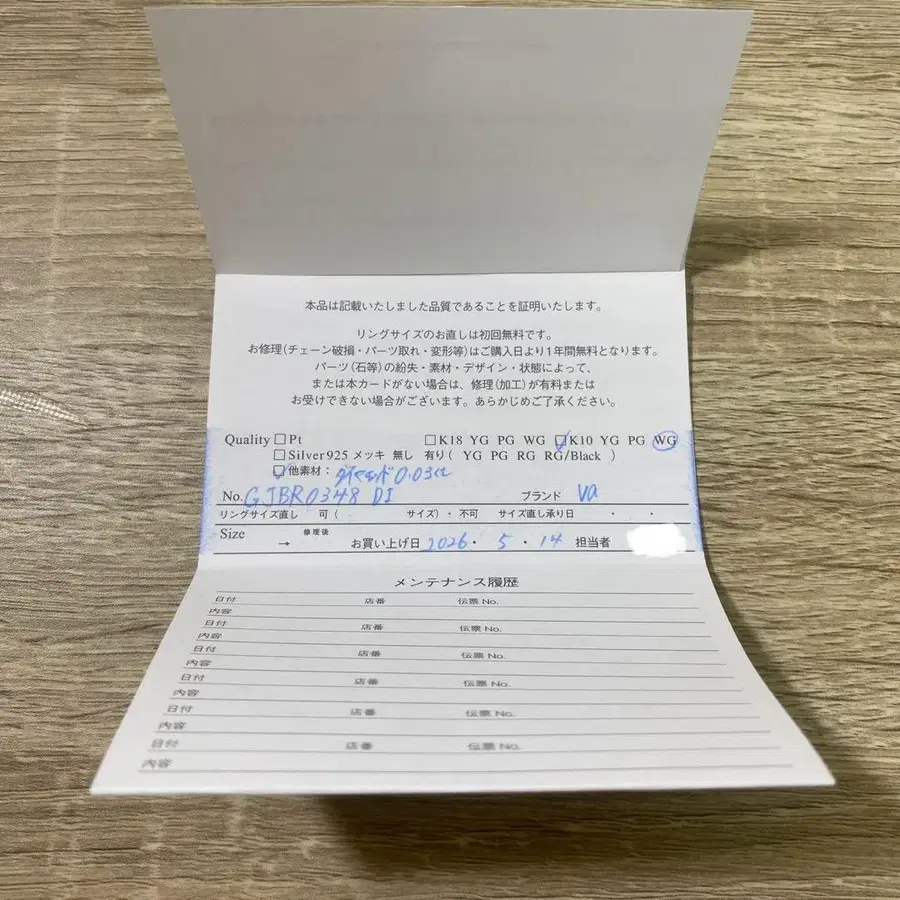 本品は記載いたしました品質であることを証明いたします。
リングサイズのお直しは初回無料です。
お修理(チェーン破損・パーツ取れ・変形等)はご購入日より1年間無料となります。
パーツ(石等)の紛失・素材・デザイン・状態によって、
または本カードがない場合は、修理(加工)が有料または
お受けできない場合がございます。あらかじめご了承ください。
Quality □Pt □K18 YG PG WG ☑K10 YG PG WG
□Silver925 メッキ 無し 有り( YG PG RG RG/Black )
☑他素材: ダイヤモンド0.03ct
No. GJBR0348 DI ブランド va
リングサイズ直し 可( ・ サイズ)・不可 サイズ直し承り日 ・ ・
Size → 修理後 お買い上げ日 2026・5・14 担当者
メンテナンス履歴
日付 店番 伝票 No.
内容
日付 店番 伝票 No.
内容
日付 店番 伝票 No.
内容
日付 店番 伝票 No.
内容
日付 店番 伝票 No.
内容
日付 店番 伝票 No.
内容